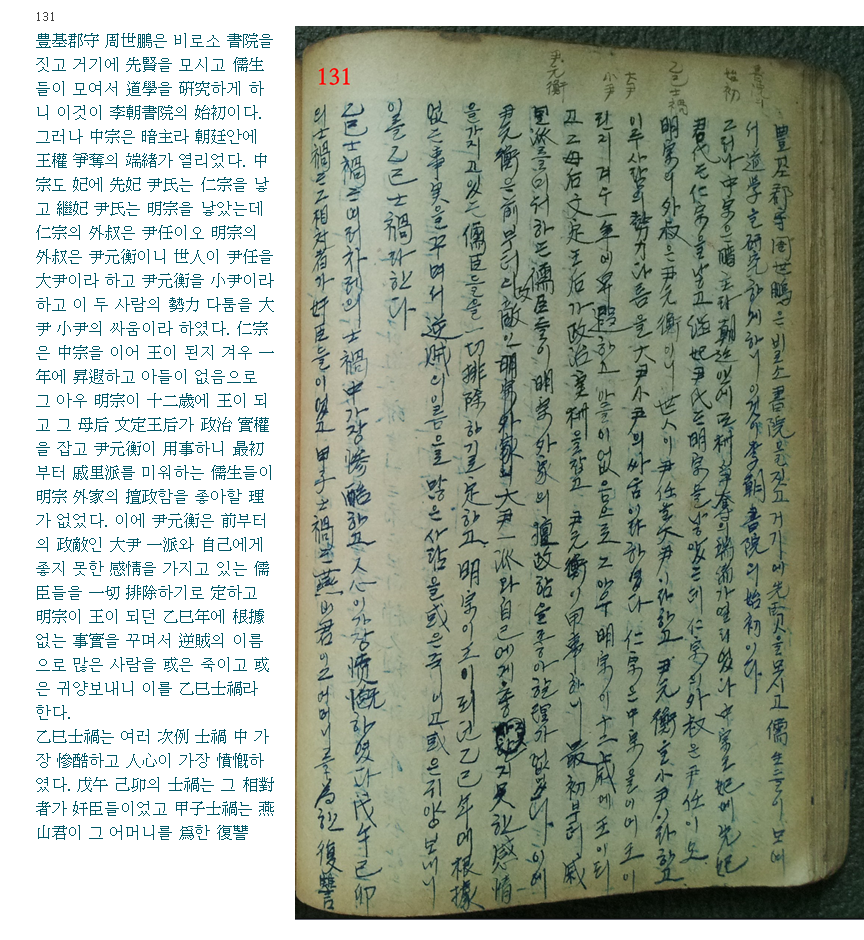 131
豊基郡守 周世鵬은 비로소 書院을
짓고 거기에 先賢을 모시고 儒生
들이 모여서 道學을 硏究하게 하
니 이것이 李朝書院의 始初이다.
그러나 中宗은 暗主라 朝廷안에
王權 爭奪의 端緖가 열리었다. 中
宗도 妃에 先妃 尹氏는 仁宗을 낳
고 繼妃 尹氏는 明宗을 낳았는데
仁宗의 外叔은 尹任이오 明宗의
外叔은 尹元衡이니 世人이 尹任을
大尹이라 하고 尹元衡을 小尹이라
하고 이 두 사람의 勢力 다툼을 大
尹 小尹의 싸움이라 하였다. 仁宗
은 中宗을 이어 王이 된지 겨우 一
年에 昇遐하고 아들이 없음으로
그 아우 明宗이 十二歲에 王이 되
고 그 母后 文定王后가 政治 實權
을 잡고 尹元衡이 用事하니 最初
부터 戚里派를 미워하는 儒生들이
明宗 外家의 擅政함을 좋아할 理
가 없었다. 이에 尹元衡은 前부터
의 政敵인 大尹 一派와 自己에게
좋지 못한 感情을 가지고 있는 儒
臣들을 一切 排除하기로 定하고
明宗이 王이 되던 乙巳年에 根據
없는 事實을 꾸며서 逆賊의 이름
으로 많은 사람을 或은 죽이고 或
은 귀양보내니 이를 乙巳士禍라
한다.
乙巳士禍는 여러 次例 士禍 中 가
장 慘酷하고 人心이 가장 憤慨하
였다. 戊午 己卯의 士禍는 그 相對
者가 奸臣들이었고 甲子士禍는 燕
山君이 그 어머니를 爲한 復讐
131
書院의
始初
乙巳士禍
大尹
小尹
尹元衡
豊基郡守 周世鵬은 비로소 書院을 짓고 거기에 先賢을 모시고 儒生들이 모여
서 道學을 硏究하게 하니 이것이 李朝書院의 始初이다
그러나 中宗은 暗主라 朝廷안에 王權 爭奪의 端緖가 열리었다 中宗도 妃에 先妃
尹氏는 仁宗을 낳고 継妃 尹氏는 明宗을 낳았는데 仁宗의 外叔은 尹任이오
明宗의 外叔은 尹元衡이니 世人이 尹任을 大尹이라 하고 尹元衡을 小尹이라 하고
이 두 사람의 勢力다틈을 大尹小尹의 싸움이라 하였다 仁宗은 中宗을 이어 王이
된지 겨우 一年에 昇遐하고 아들이 없음으로 그 아우 明宗이 十二歲에 王이 되
고 그 母后 文定王后가 政治実権을 잡고 尹元衡이 用事하니 最初부터 戚
里派를 미워하는 儒臣들이 明宗 外家의 擅政함을 좋아할 理가 없었다 이에
尹元衡은 前부터의 政敵인 大尹一派와 自己에게 좋지 못한 感情
을 가지고 있는 儒臣들을 一切 排除하기로 定하고 明宗이 王이 되던 乙巳年에 根據
없는 事実을 꾸며서 逆賊의 이름으로 많은 사람을 或은 죽이고 或은 귀양보내니
이를 乙巳士禍라 한다
乙巳士禍는 여러차례의 士禍中 가장 慘酷하고 人心이 가장 憤慨하였다 戊午己卯
의 士禍는 그 相對者가 奸臣들이었고 甲子士禍는 燕山君이 그 어머니를 爲한 復讐